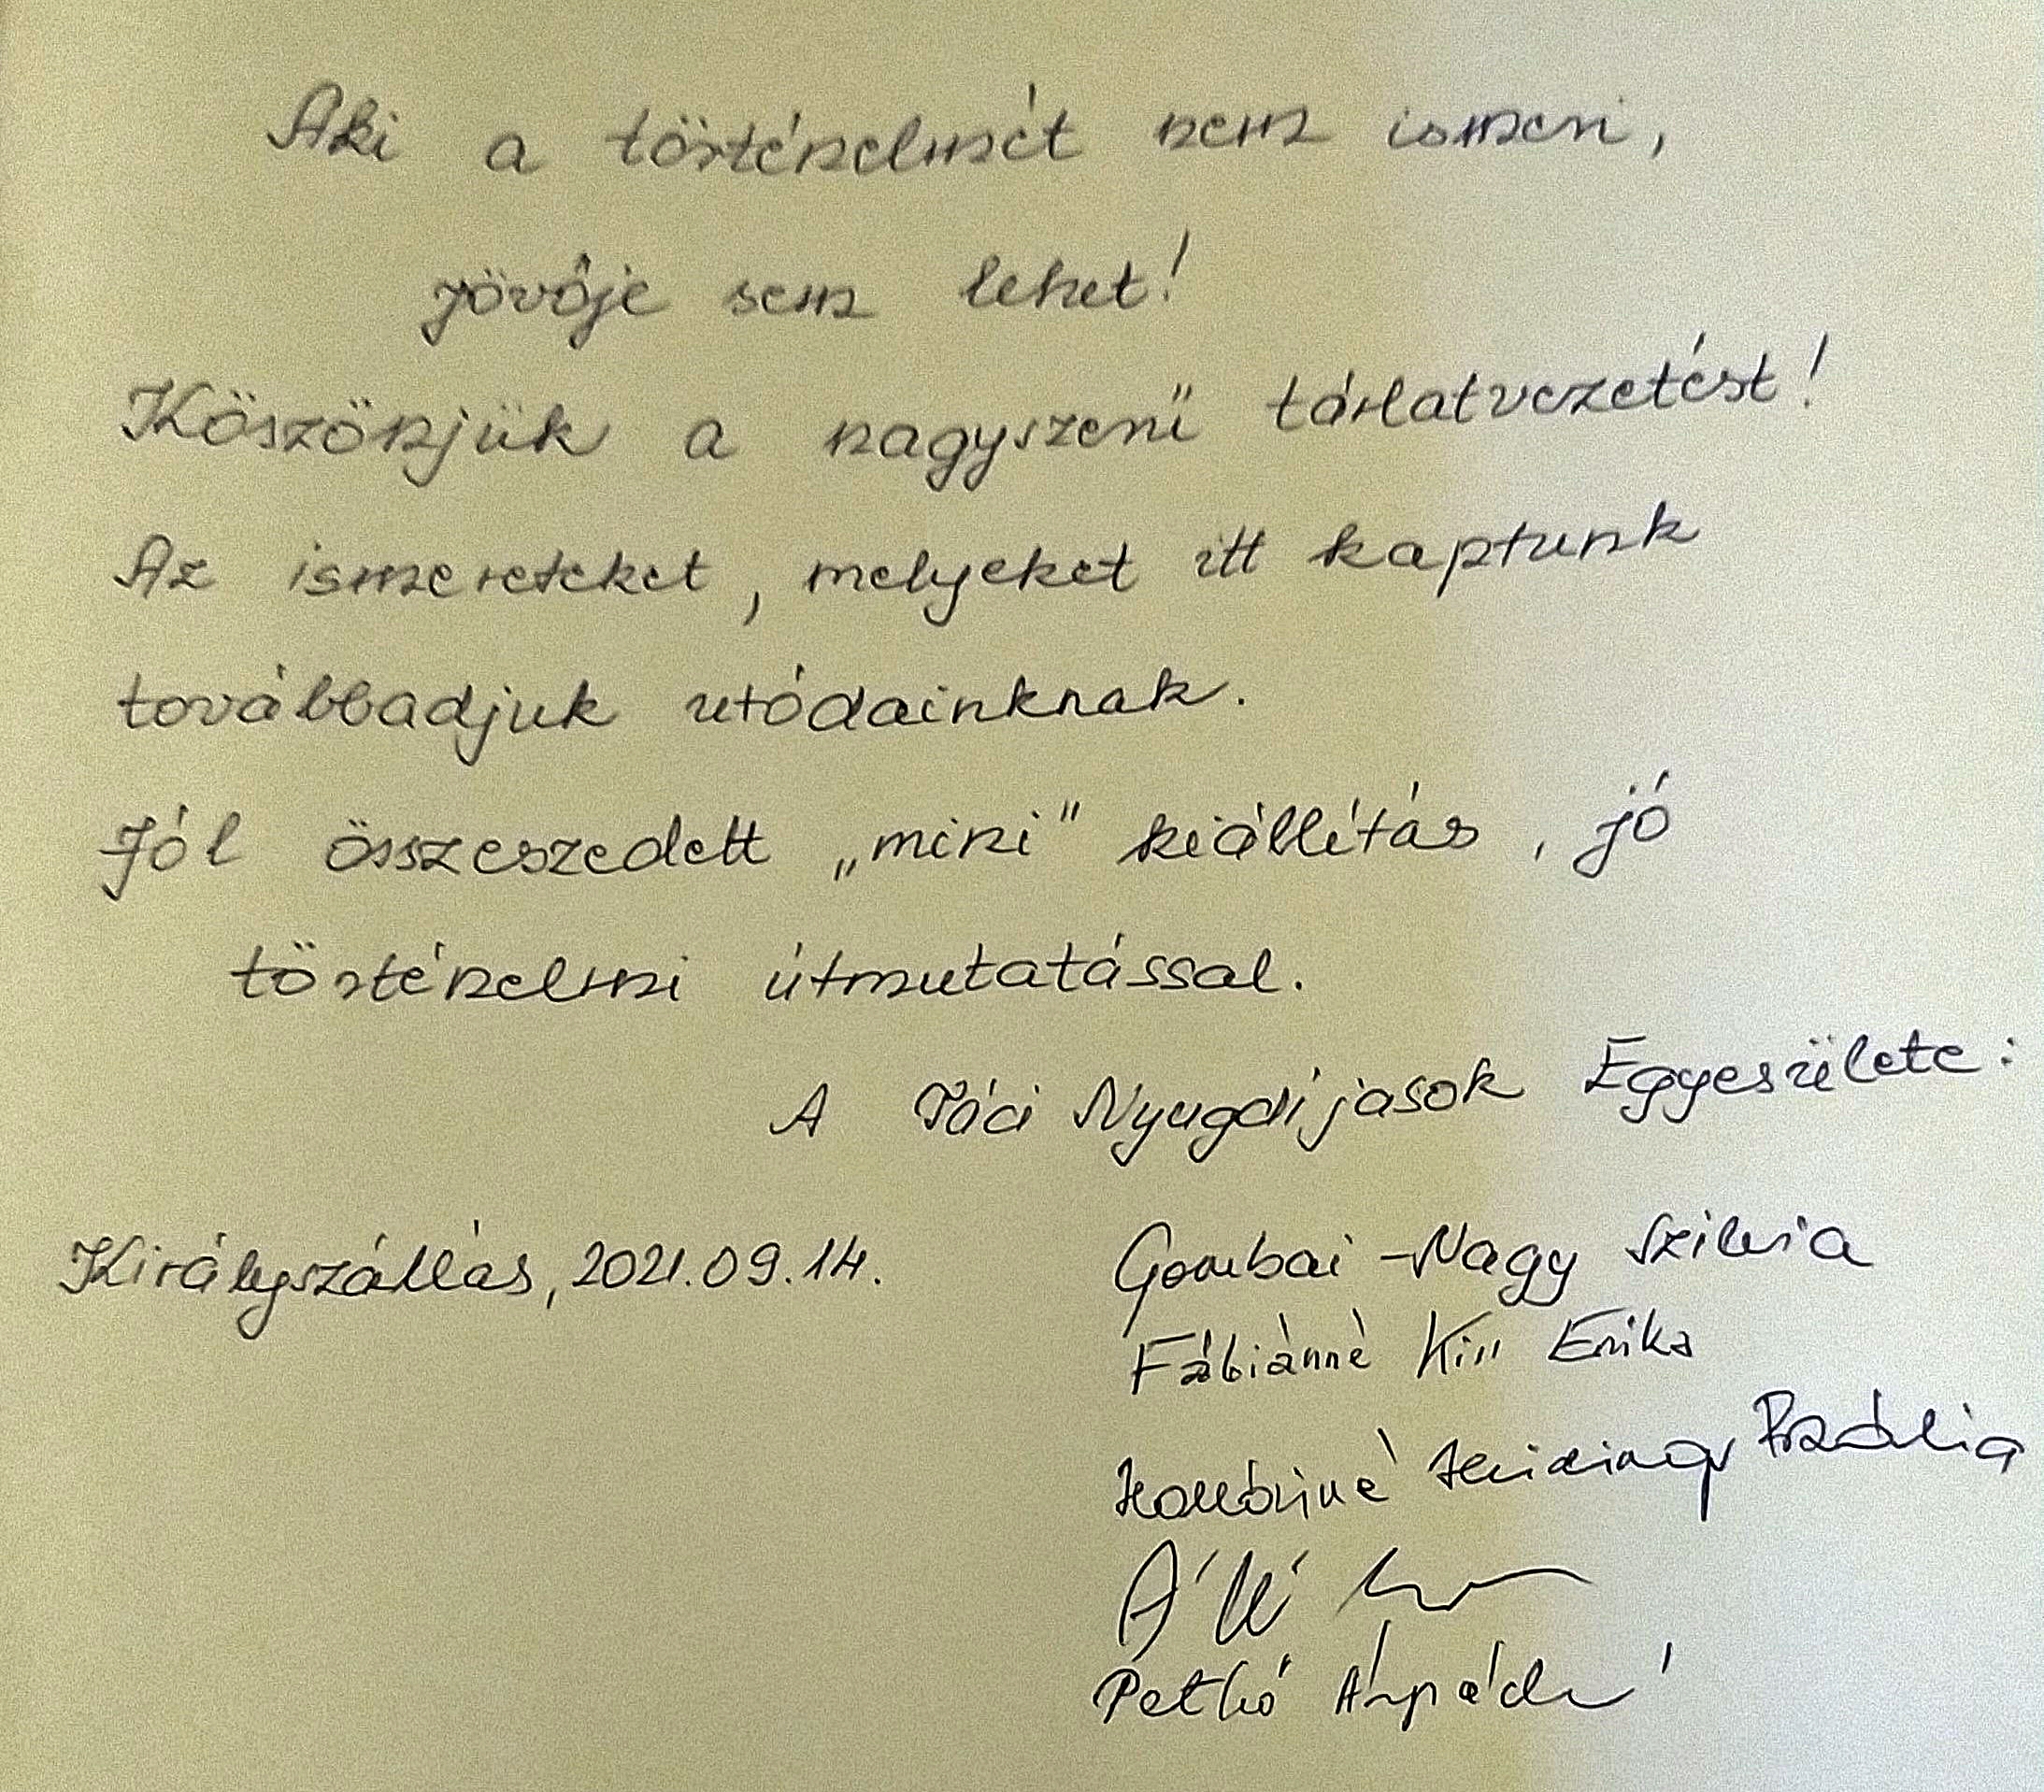 Aki a történelmét nem ismeri,
jövője sem lehet!
Köszönjük a nagyszerű tárlatvezetést!
Az ismereteket, melyeket itt kaptunk
továbbadjuk utódainknak.
Jól összeszedett „mini" kiállítás, jó
történelmi útmutatással.
A Táci Nyugdíjasok Egyesülete:
Királyszállás, 2021.09.14.
Gombai-Nagy Szilvia
Fábiánné Kiss Erika
Rozália
Petkó Árpádné